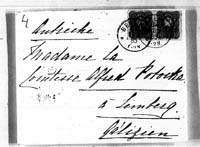 4
Autriche
Madame la
Comtesse Alfred Potocka
à Lemberg
Galizien